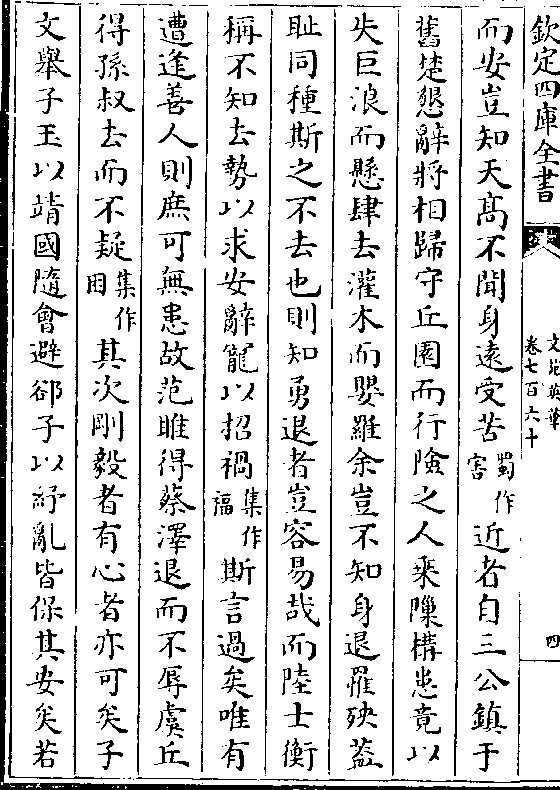 欽定四庫全書
文苑英華
卷七百六十
四
而安豈知天髙不聞身遠受苦蜀作害近者自三公鎮于
舊楚懇辭將相歸守丘園而行險之人乘隟構患竟以
失巨浪而懸肆去灌木而嬰羅余豈不知身退罹殃葢
耻同種斯之不去也則知勇退者豈容易哉而陸士衡
稱不知去勢以求安辭寵以招禍集作福斯言過矣唯有
遭逢善人則庶可無患故范雎得蔡澤退而不辱虞丘
得孫叔去而不疑集作困其次剛毅者有心者亦可矣子
文舉子玉以靖國隨會避郤子以紓亂皆保其安矣若